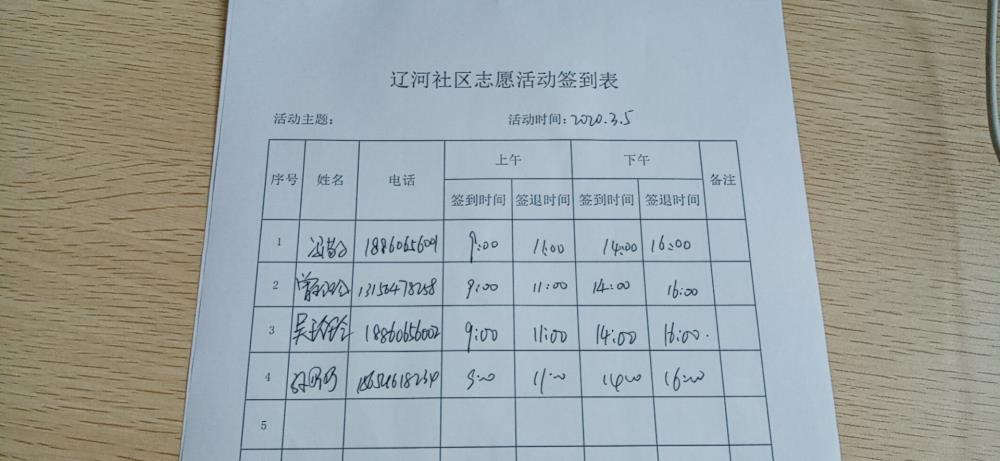 辽河社区志愿活动签到表
活动主题: 活动时间:2020.3.5
序号 姓名 电话 上午 下午 备注
签到时间 签退时间 签到时间 签退时间
1 9:00 11:00 14:00 16:00
2 13150478258 9:00 11:00 14:00 16:00
3 18860656002 9:00 11:00 14:00 16:00.
4 9:00 11:00 14:00 16:00
5